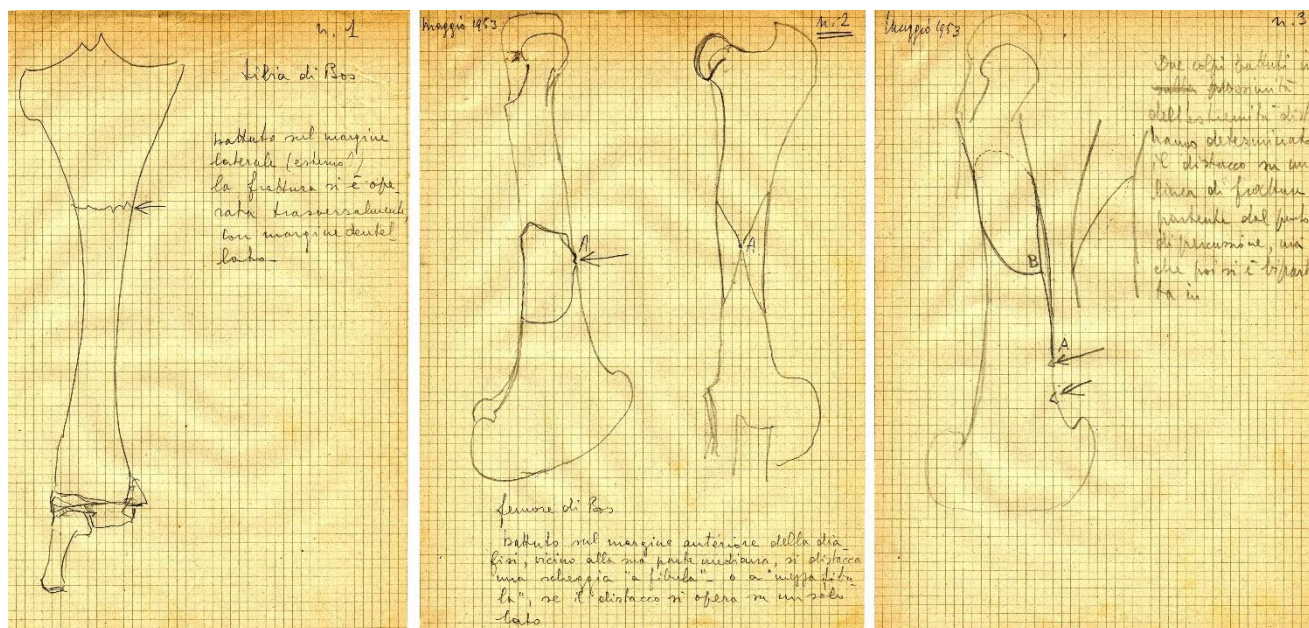 n. 1
tibia di Bos
battuto sul margine
laterale (esterno?)
la frattura si è ope-
rata trasversalmente,
con margine dentel-
lato -
maggio 1953
n. 2
A
A
femore di Bos
battuto sul margine anteriore della dia-
fisi, vicino alla sua parte mediana, si distacca
una scheggia "a fibula" - o a "mezza fibu-
la", se il distacco si opera su un solo
lato
Maggio 1953
n. 3
Due colpi battuti in
prossimità
dell'estremità dist
hanno determinato
il distacco su un
linea di frattura
partente dal punto
di percussione, ma
che poi si è bipart
ta in
B
A